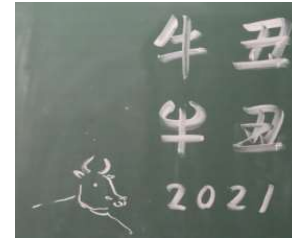 牛 丑
牛 丑
2021